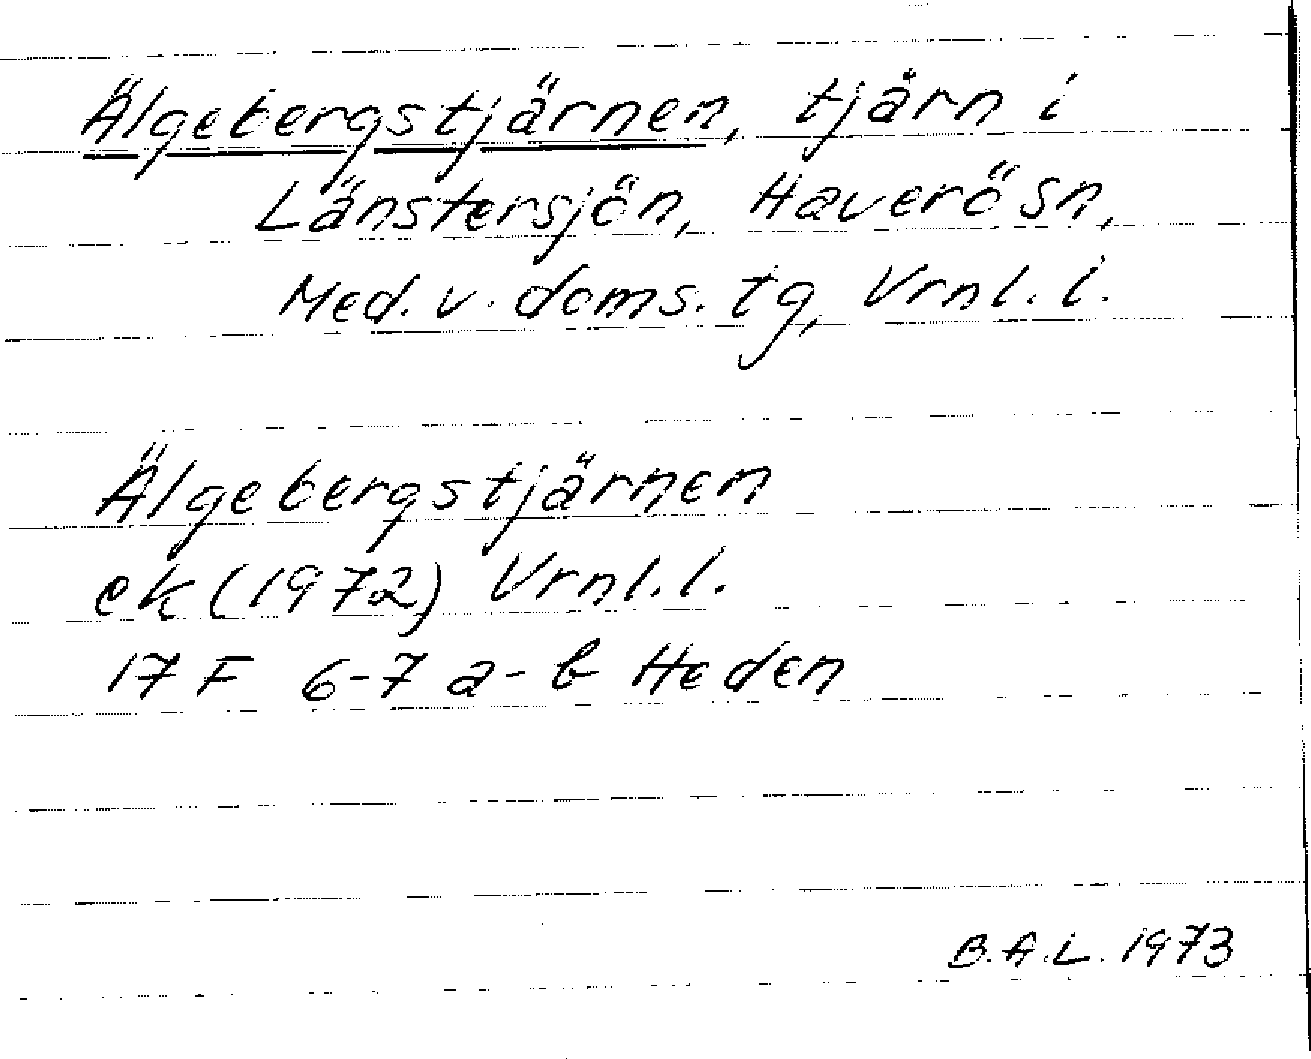 Älgebergstjärnen, tjärn i
Länstersjön, Haverö sn,
Med. v. doms. tg, Vrnl. l.
Älgebergstjärnen
ek (1972) Vrnl. l.
17 F 6-7 a-b Heden
B.A.L. 1973